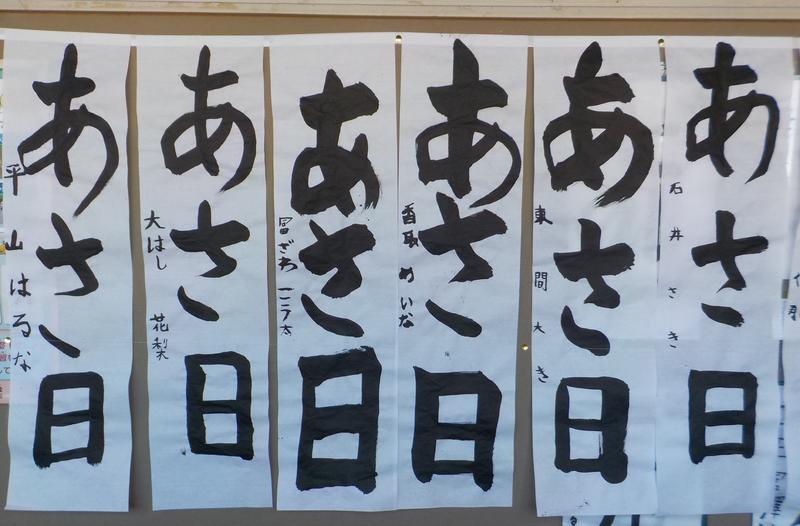 あさ日
石井さき
あさ日
東間大き
あさ日
香取めいな
あさ日
冨ざわこう太
あさ日
大はし花梨
あさ日
平山はるな